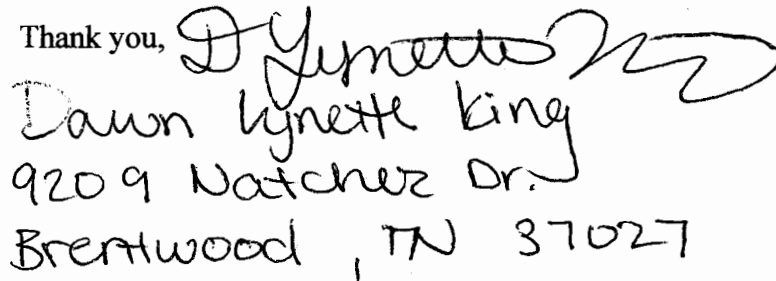 Thank you, D Lynette King
Dawn Lynette King
9209 Natchez Dr.
Brentwood, TN 37027